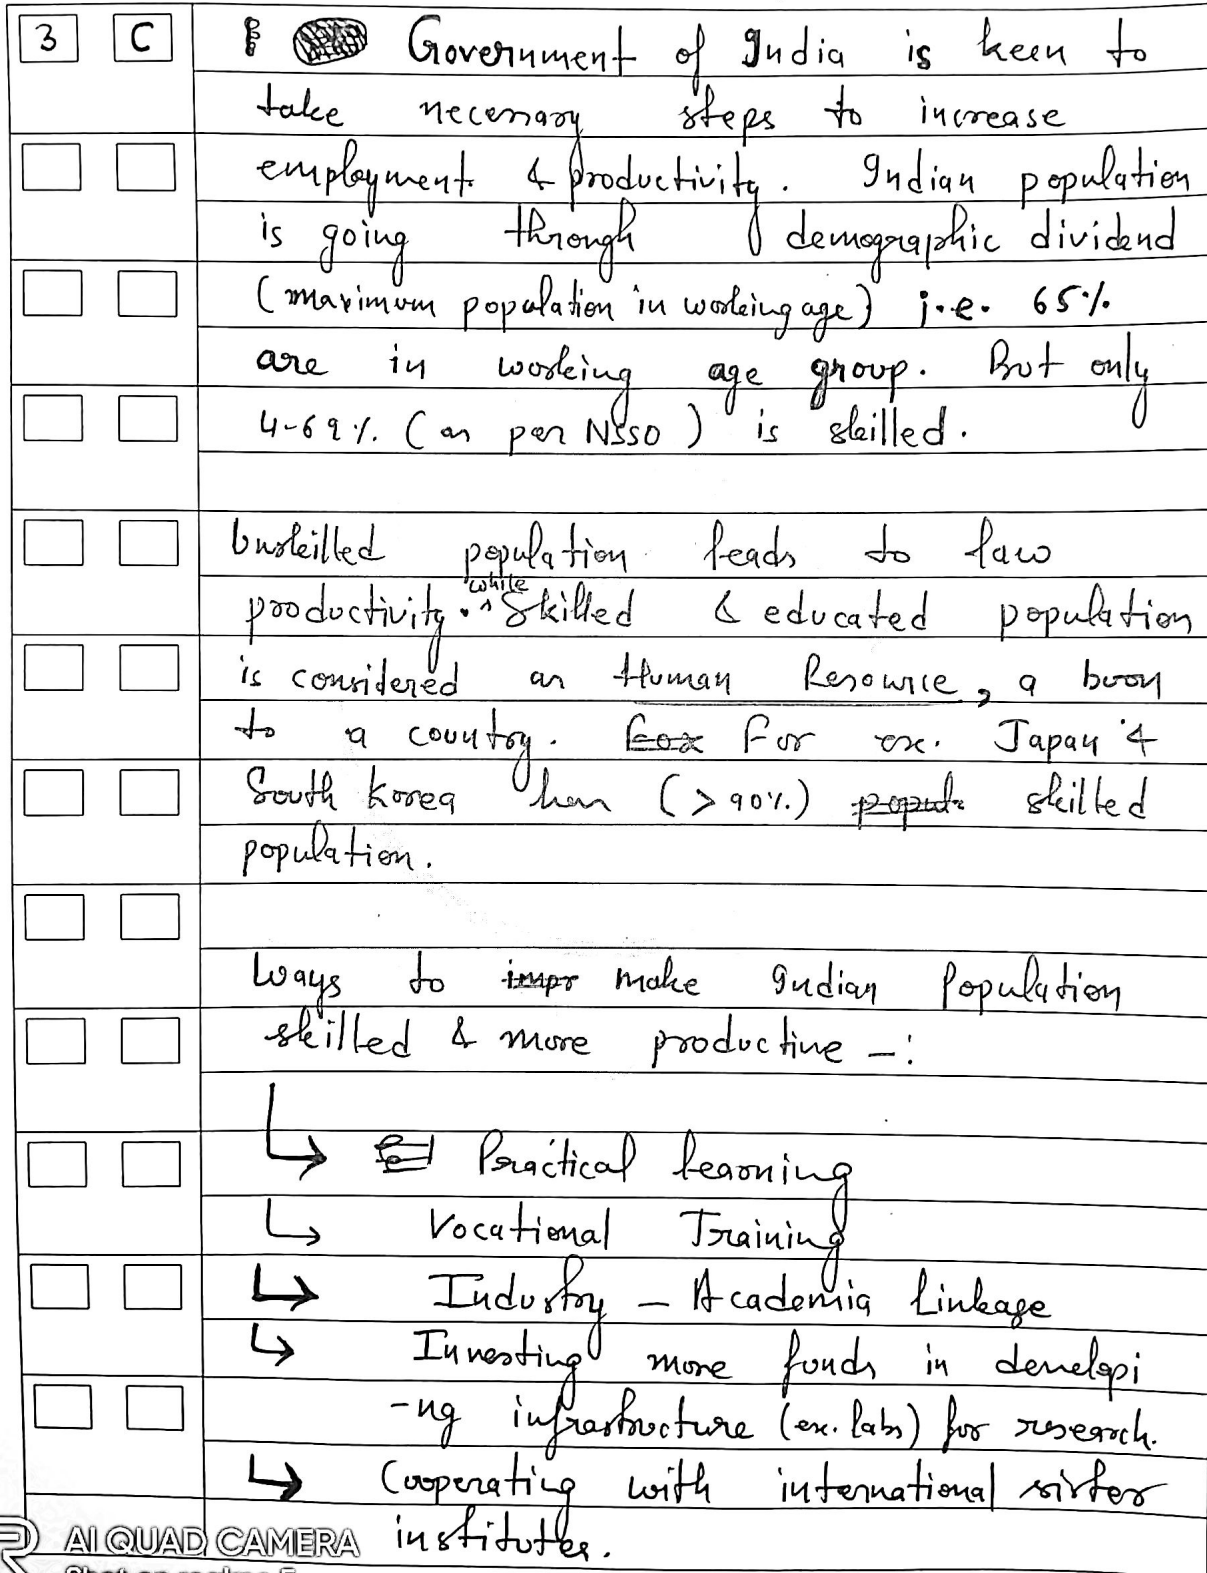 3 C Government of India is keen to
take necessary steps to increase
employment & productivity. Indian population
is going through demographic dividend
(maximum population in working age) i.e. 65%
are in working age group. But only
4-69%. (as per NSSO) is skilled.
Unskilled population leads to law
productivity. while Skilled & educated population
is considered as Human Resource, a boon
to a country. For For ex. Japan &
South Korea has (>90%) skilled
population.
Ways to impr make Indian Population
skilled & more productive -:
↳ Practical learning
↳ Vocational Training
↳ Industry - Academia Linkage
↳ Investing more funds in developi
-ng infrastructure (ex. labs) for research.
↳ Cooperating with international sister
institutes.
AI QUAD CAMERA
Shot on realme 5